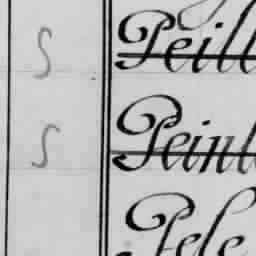 S Peill
S Peint
Pele